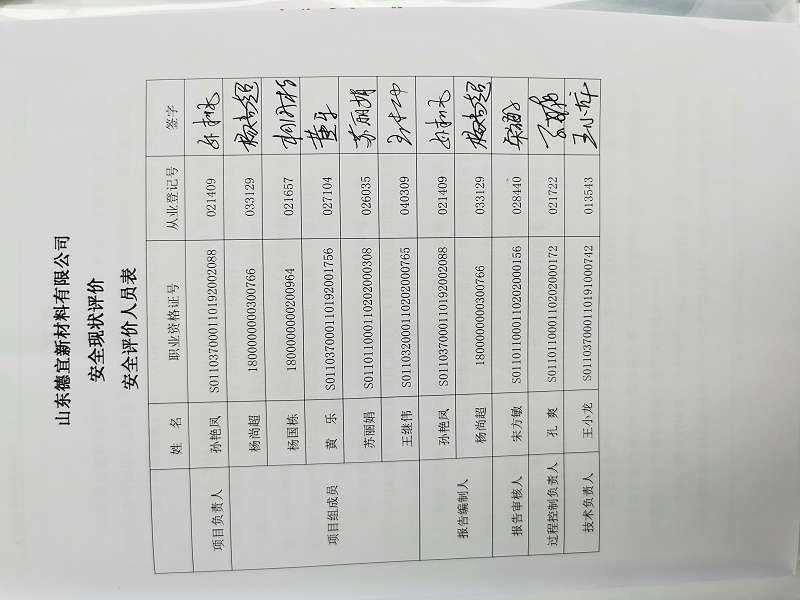 山东德宜新材料有限公司
安全现状评价
安全评价人员表
姓 名 职业资格证号 从业登记号 签字
项目负责人 孙艳凤 S011037000110192002088 021409
项目组成员 杨尚超 1800000000300766 033129 杨尚超
杨国栋 1800000000200964 021657
黄 乐 S011037000110192001756 027104 黄乐
苏丽娟 S011011000110202000308 026035 苏丽娟
王继伟 S011032000110202000765 040309
报告编制人 孙艳凤 S011037000110192002088 021409
杨尚超 1800000000300766 033129 杨尚超
报告审核人 宋方敏 S011011000110202000156 028440
过程控制负责人 孔 爽 S011011000110202000172 021722
技术负责人 王小龙 S011037000110191000742 013543 王小龙